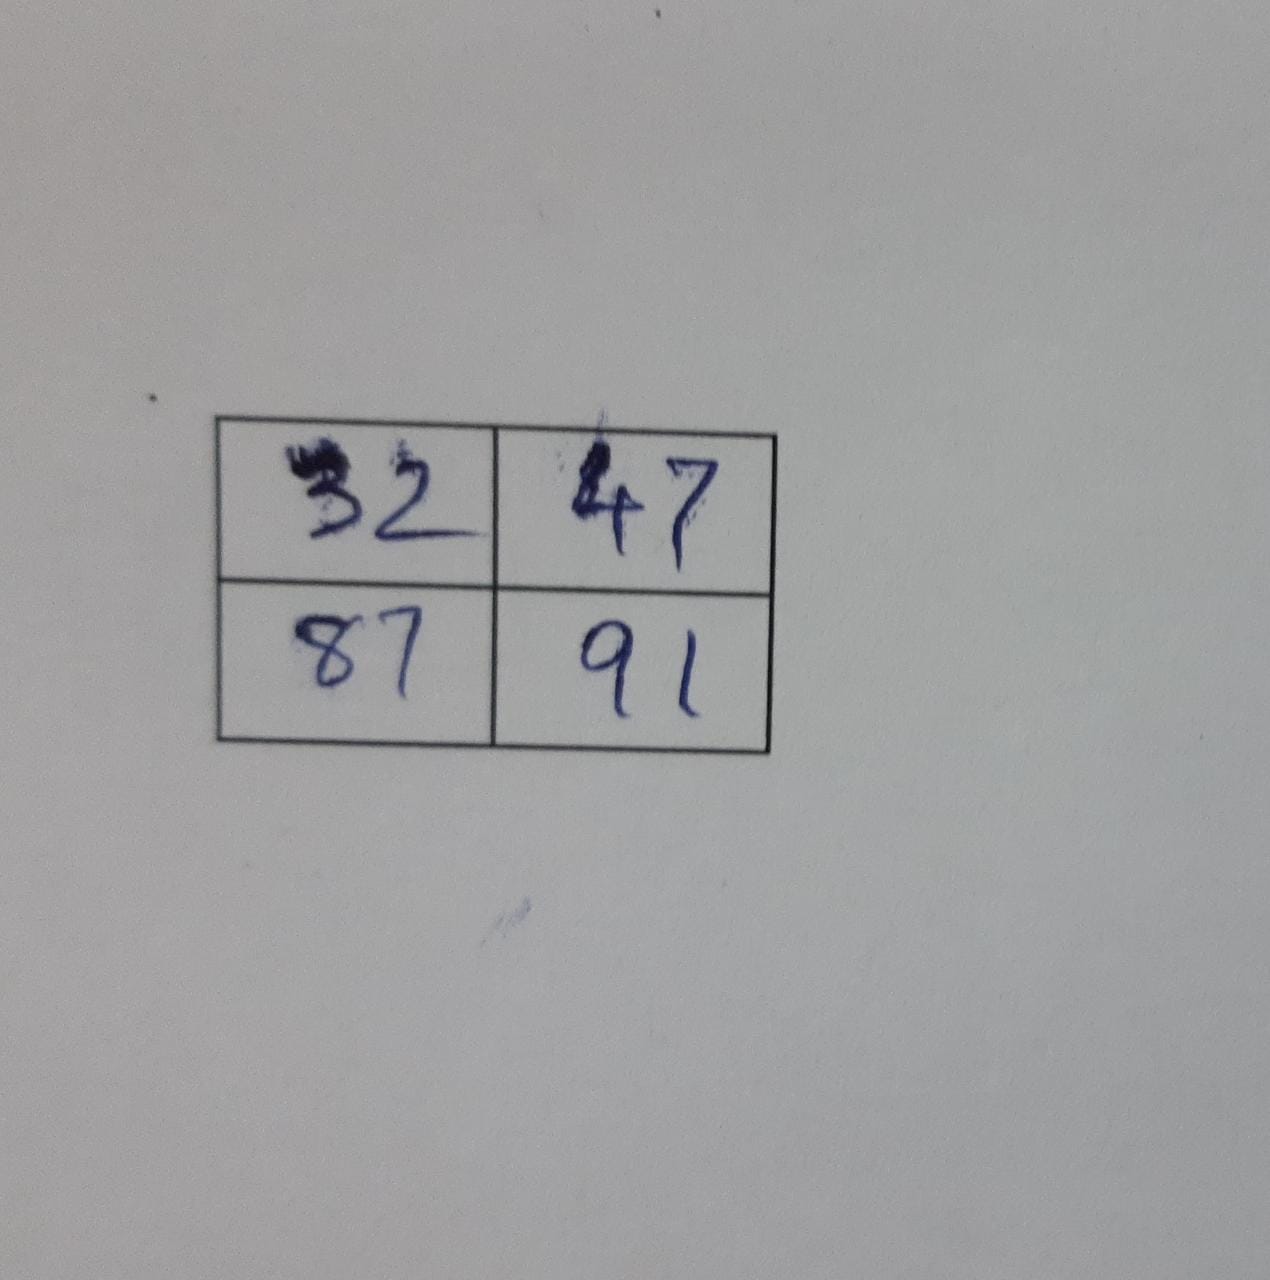 32 47
87 91